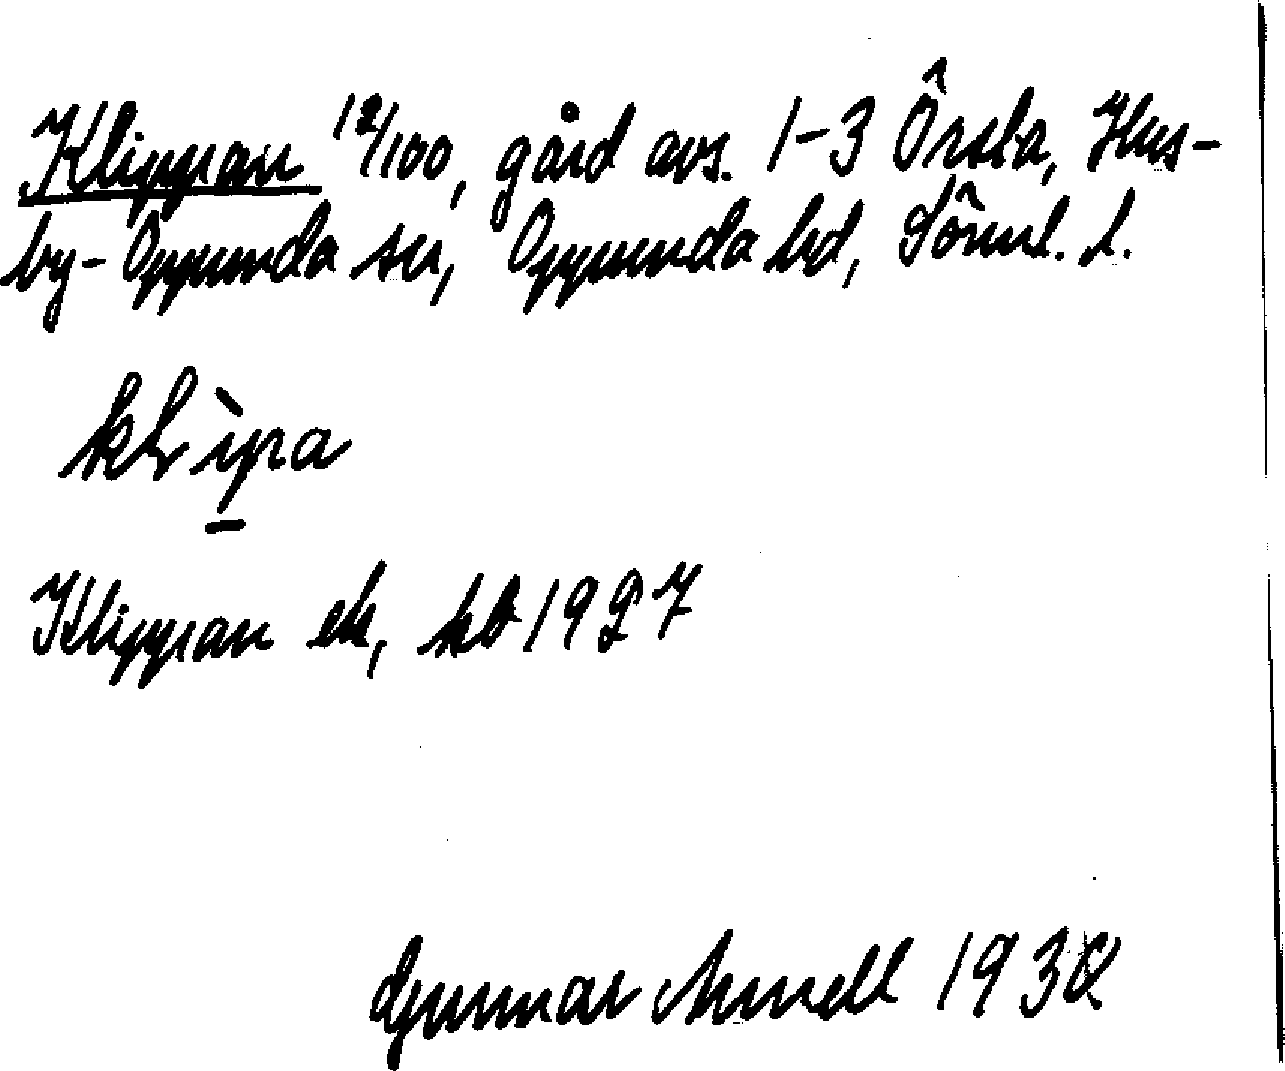 Klippan 12/100, gård avs. 1-3 Örsla, Hus-
by-Oppunda sn, Oppunda hd, Sörml. l.
klìpa
Klippan ek, kb 1927
Gunnar Arnell 1930